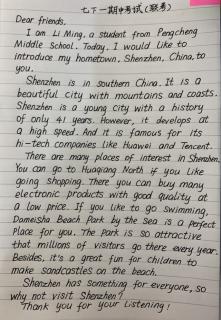 七下一期中考试(联考)
Dear friends,
I am Li Ming, a student from Pengcheng
Middle School. Today, I would like to
introduce my hometown, Shenzhen, China, to
you.
Shenzhen is in southern China. It is a
beautiful city with mountains and coasts.
Shenzhen is a young city with a history
of only 41 years. However, it develops at
a high speed. And it is famous for its
hi-tech companies like Huawei and Tencent.
There are many places of interest in Shenzhen.
You can go to Huaqiang North if you like
going shopping. There you can buy many
electronic products with good quality at
a low price. If you like to go swimming,
Dameisha Beach Park by the Sea is a perfect
Place for you. The Park is so attractive
that millions of visitors go there every year.
Besides, it's a great fun for children to
make sandcastles on the beach.
Shenzhen has something for everyone, so
why not visit Shenzhen?
Thank you for your listening!